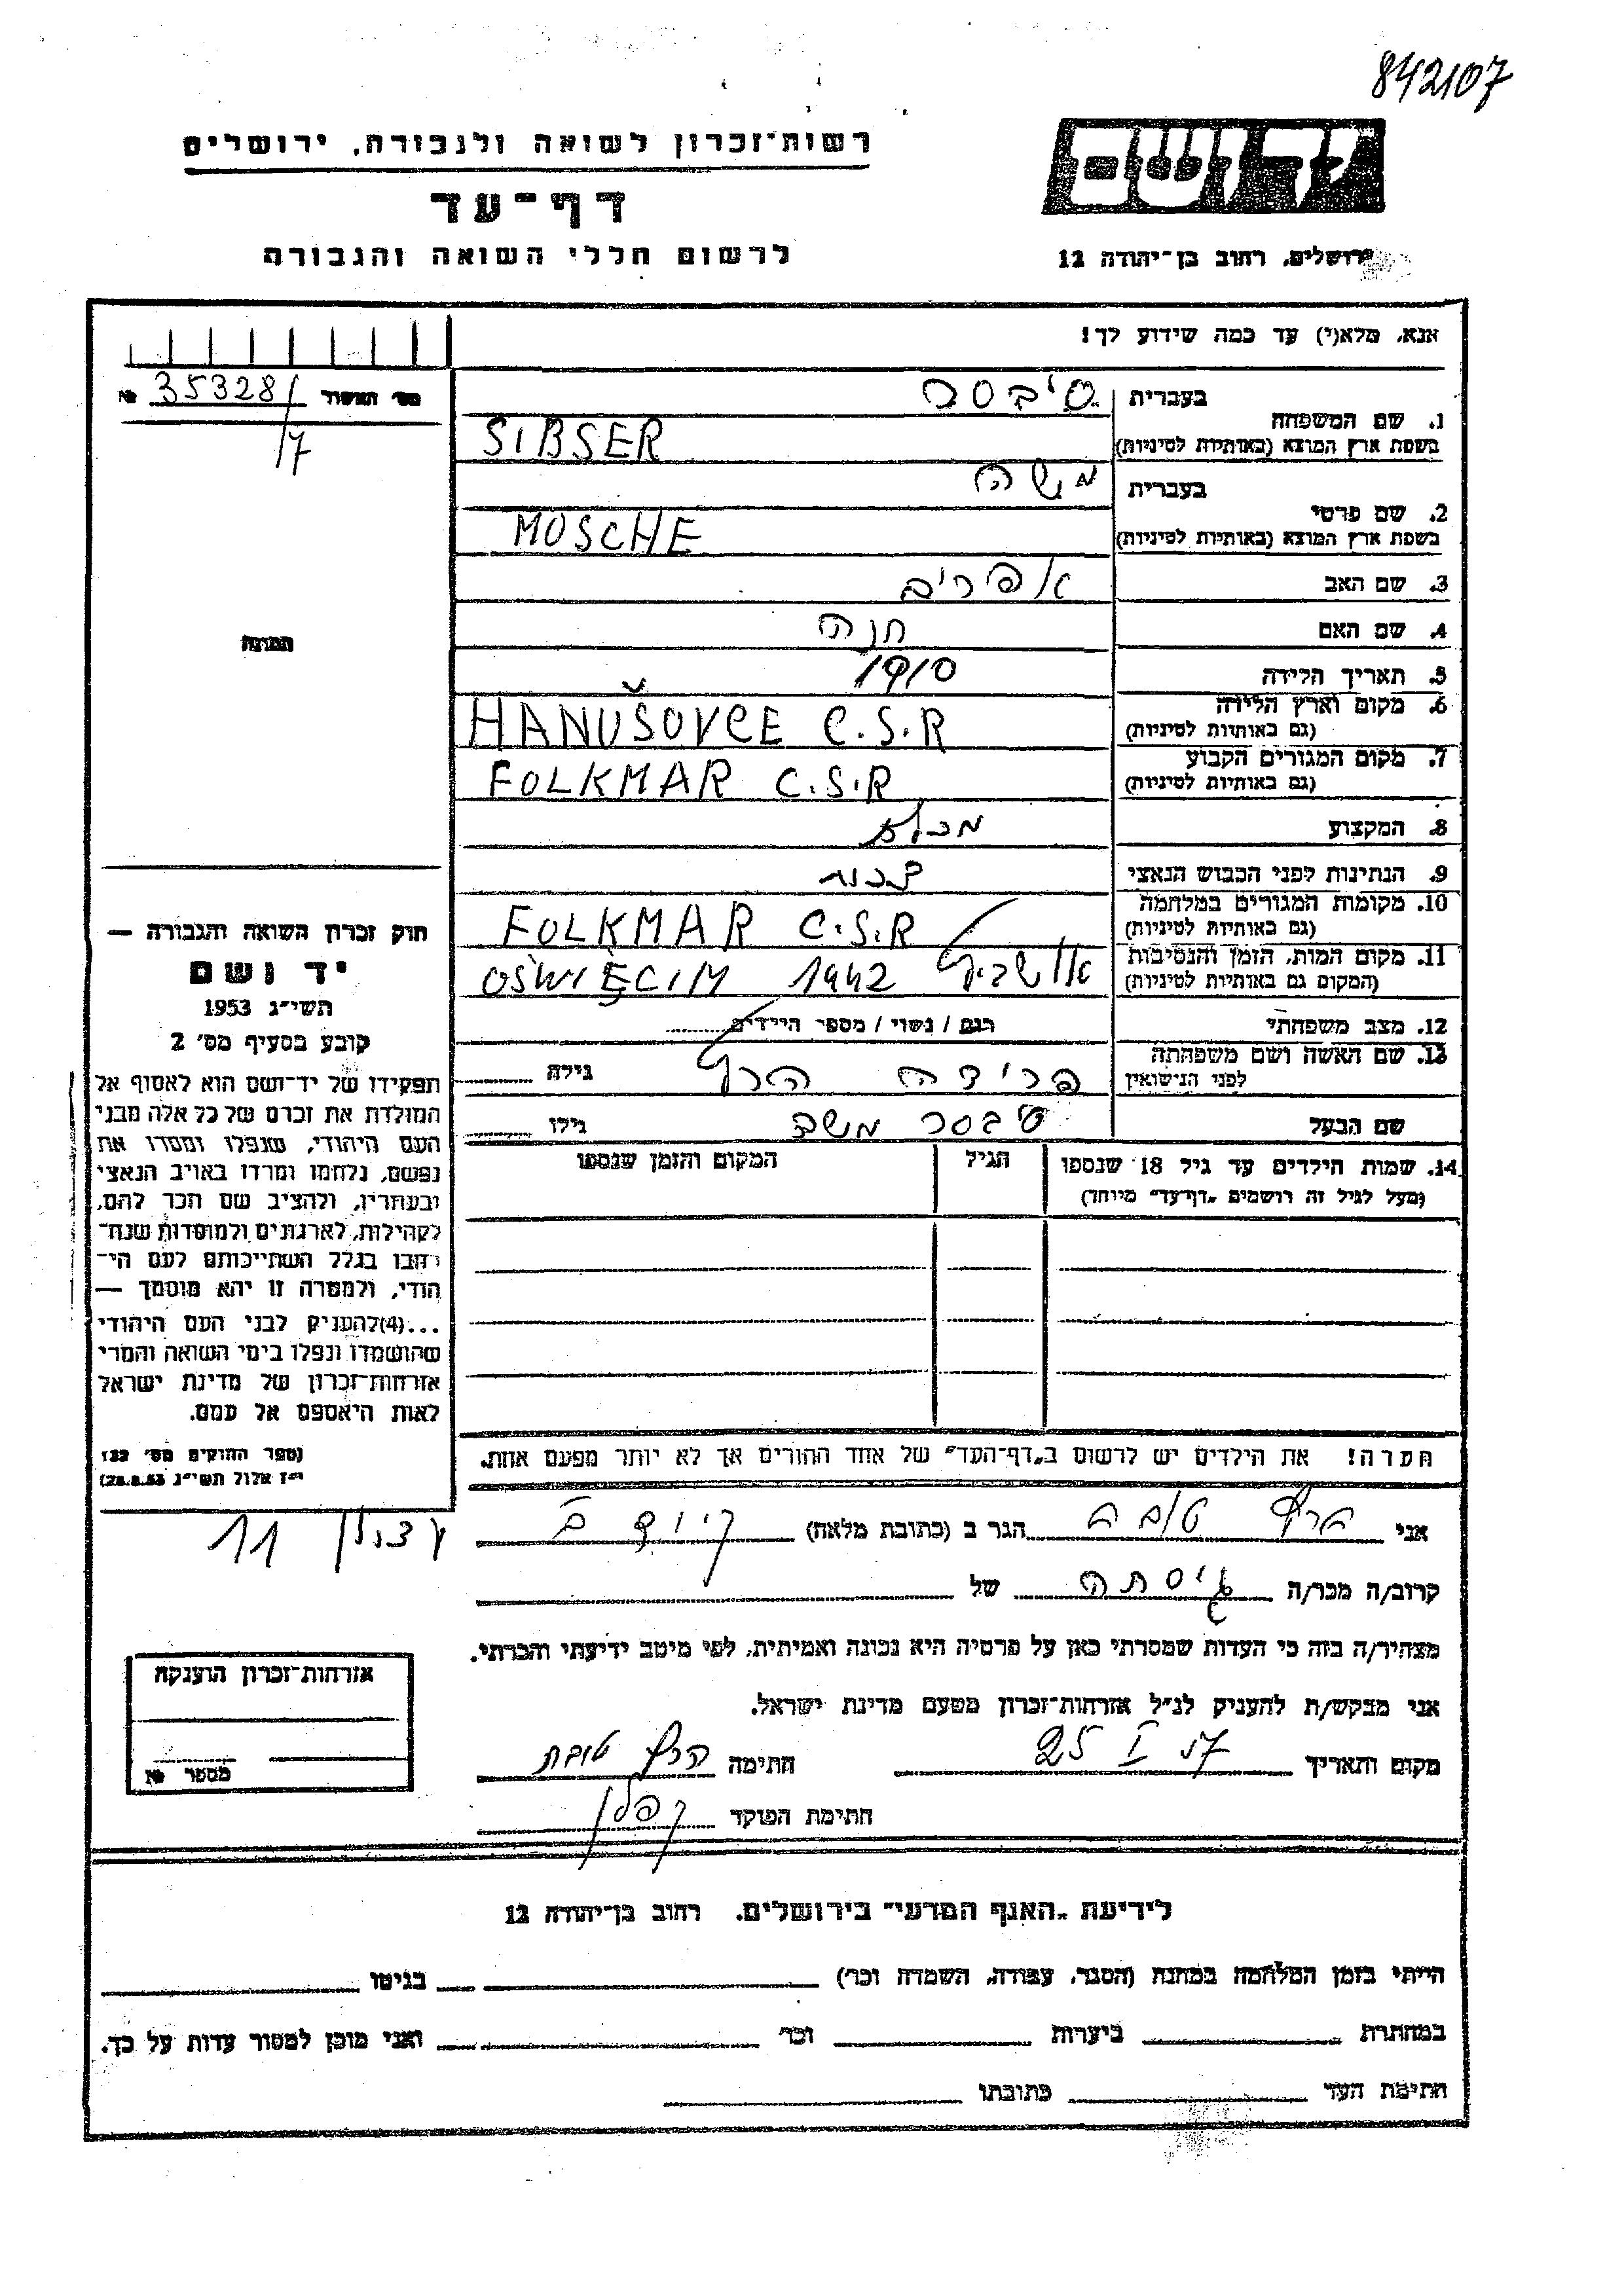 842107
יד ושם
רשות־זכרון לשואה ולגבורה, ירושלים
דף־עד
לרשום חללי השואה והגבורה
ירושלים, רחוב בן־יהודה 12
אנא, מלא(י) עד כמה שידוע לך!
מס׳ האשור 35328/ №
17
1. שם המשפחה
בעברית סיבסר
בשפת ארץ המוצא (באותיות לטיניות) SIBSER
2. שם פרטי
בעברית משה
בשפת ארץ המוצא (באותיות לטיניות) MOSCHE
3. שם האב אפרים
4. שם האם חנה
5. תאריך הלידה 1910
6. מקום וארץ הלידה HANUŠOVCE C.S.R
(גם באותיות לטיניות)
7. מקום המגורים הקבוע FOLKMAR C.S.R
(גם באותיות לטיניות)
8. המקצוע
9. הנתינות לפני הכבוש הנאצי
10. מקומות המגורים במלחמה FOLKMAR C.S.R
(גם באותיות לטיניות)
11. מקום המות, הזמן והנסיבות אושביץ 1942 OŚWIĘCIM
(המקום גם באותיות לטיניות)
12. מצב משפחתי רווק / נשוי / מספר הילדים
13. שם האשה ושם משפחתה פרידה הרץ גילה
לפני הנישואין
שם הבעל סיבסר משה גילו
14. שמות הילדים עד גיל 18 שנספו הגיל המקום והזמן שנספו
(מעל לגיל זה רושמים „דף־עד״ מיוחד)
תמונה
חוק זכרון השואה והגבורה —
יד ושם
תשי״ג 1953
קובע בסעיף מס׳ 2
תפקידו של יד־ושם הוא לאסוף אל
המולדת את זכרם של כל אלה מבני
העם היהודי, שנפלו ומסרו את
נפשם, נלחמו ומרדו באויב הנאצי
ובעוזריו, ולהציב שם וזכר להם,
לקהילות, לארגונים ולמוסדות שנח־
רבו בגלל השתייכותם לעם הי־
הודי, ולמטרה זו יהא מוסמך —
...(4)להעניק לבני העם היהודי
שהושמדו ונפלו בימי השואה והמרי
אזרחות־זכרון של מדינת ישראל
לאות היאספם אל עמם.
(ספר החוקים מס׳ 132
י״ז אלול תשי״ג 28.8.53)
הערה! את הילדים יש לרשום ב„דף־העד״ של אחד ההורים אך לא יותר מפעם אחת.
אני הרץ טובה הגר ב (כתובת מלאה)
11
קרוב/ה מכר/ה גיסתה של
מצהיר/ה בזה כי העדות שמסרתי כאן על פרטיה היא נכונה ואמיתית, לפי מיטב ידיעתי והכרתי.
אני מבקש/ת להעניק לנ״ל אזרחות־זכרון מטעם מדינת ישראל.
מקום ותאריך 25 I 57 חתימה הרץ טובה
חתימת הפוקד קפלן
אזרחות־זכרון הוענקה
מספר №
לידיעת „האגף המדעי״ בירושלים. רחוב בן־יהודה 12
הייתי בזמן המלחמה במחנה (הסגר, עבודה, השמדה וכר׳) בגיטו
במחתרת ביערות וכר׳ ואני מוכן למסור עדות על כך.
חתימת העד כתובתו